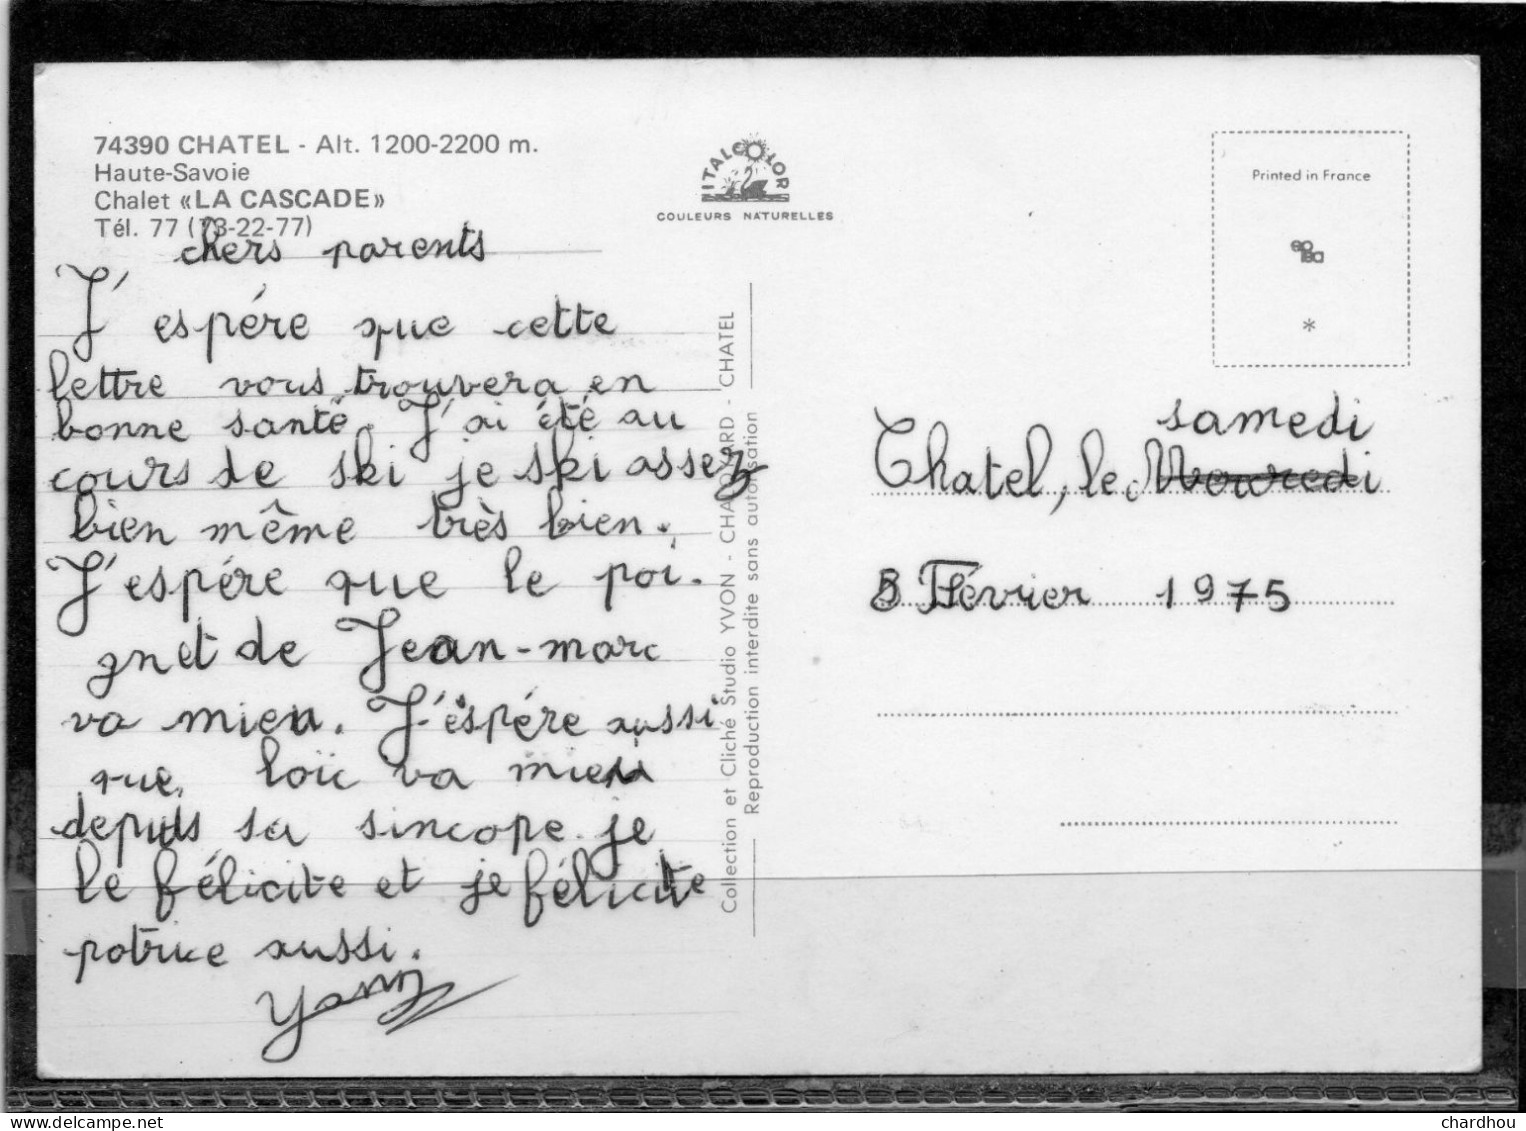 74390 CHATEL - Alt. 1200-2200 m.
Haute-Savoie
Chalet «LA CASCADE»
Tél. 77 (73-22-77)
ITALCOLOR
COULEURS NATURELLES
chers parents
J'espére que cette
lettre vous trouvera en
bonne santé. J'ai été au
cours de ski je ski assez
bien même très bien.
J'espére que le poi-
gnet de Jean-marc
va mieu. J'éspére aussi
que loïc va mieu
depuis sa sincope. je
le félicite et je félicite
patrice aussi.
Collection et Cliché Studio YVON - CHATEL
Reproduction interdite sans autorisation
Printed in France
*
samedi
Chatel, le
8 Février 1975
chardhou